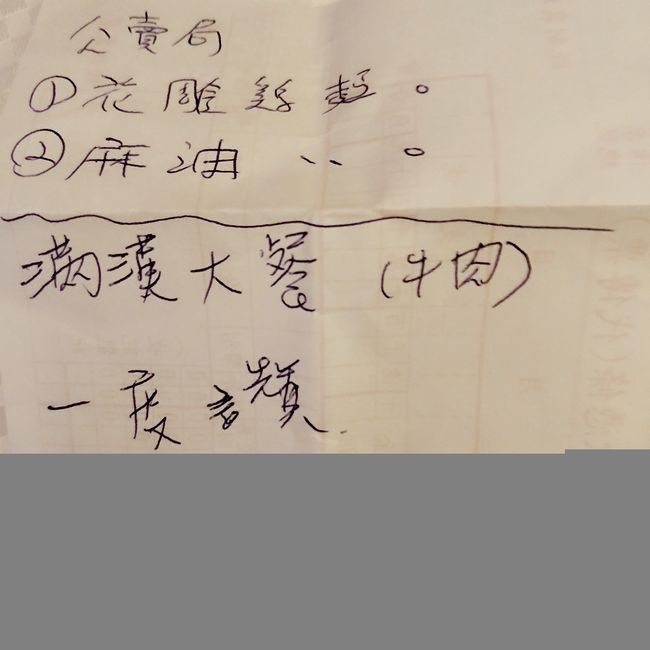 公賣局
①花雕雞麵。
②麻油〃。
滿漢大餐(牛肉)
一度贊